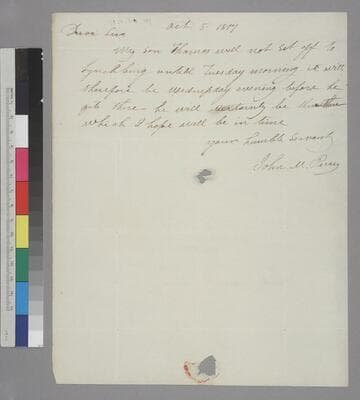 Dear Sir Oct 5 1817
My son Thomas will not set off to
Lynchburg untill Tuesday morning it will
therefore be wednesday evening before he
gets there he will certainly be there
which I hope will be in time
your humble Servant
John M. Perry